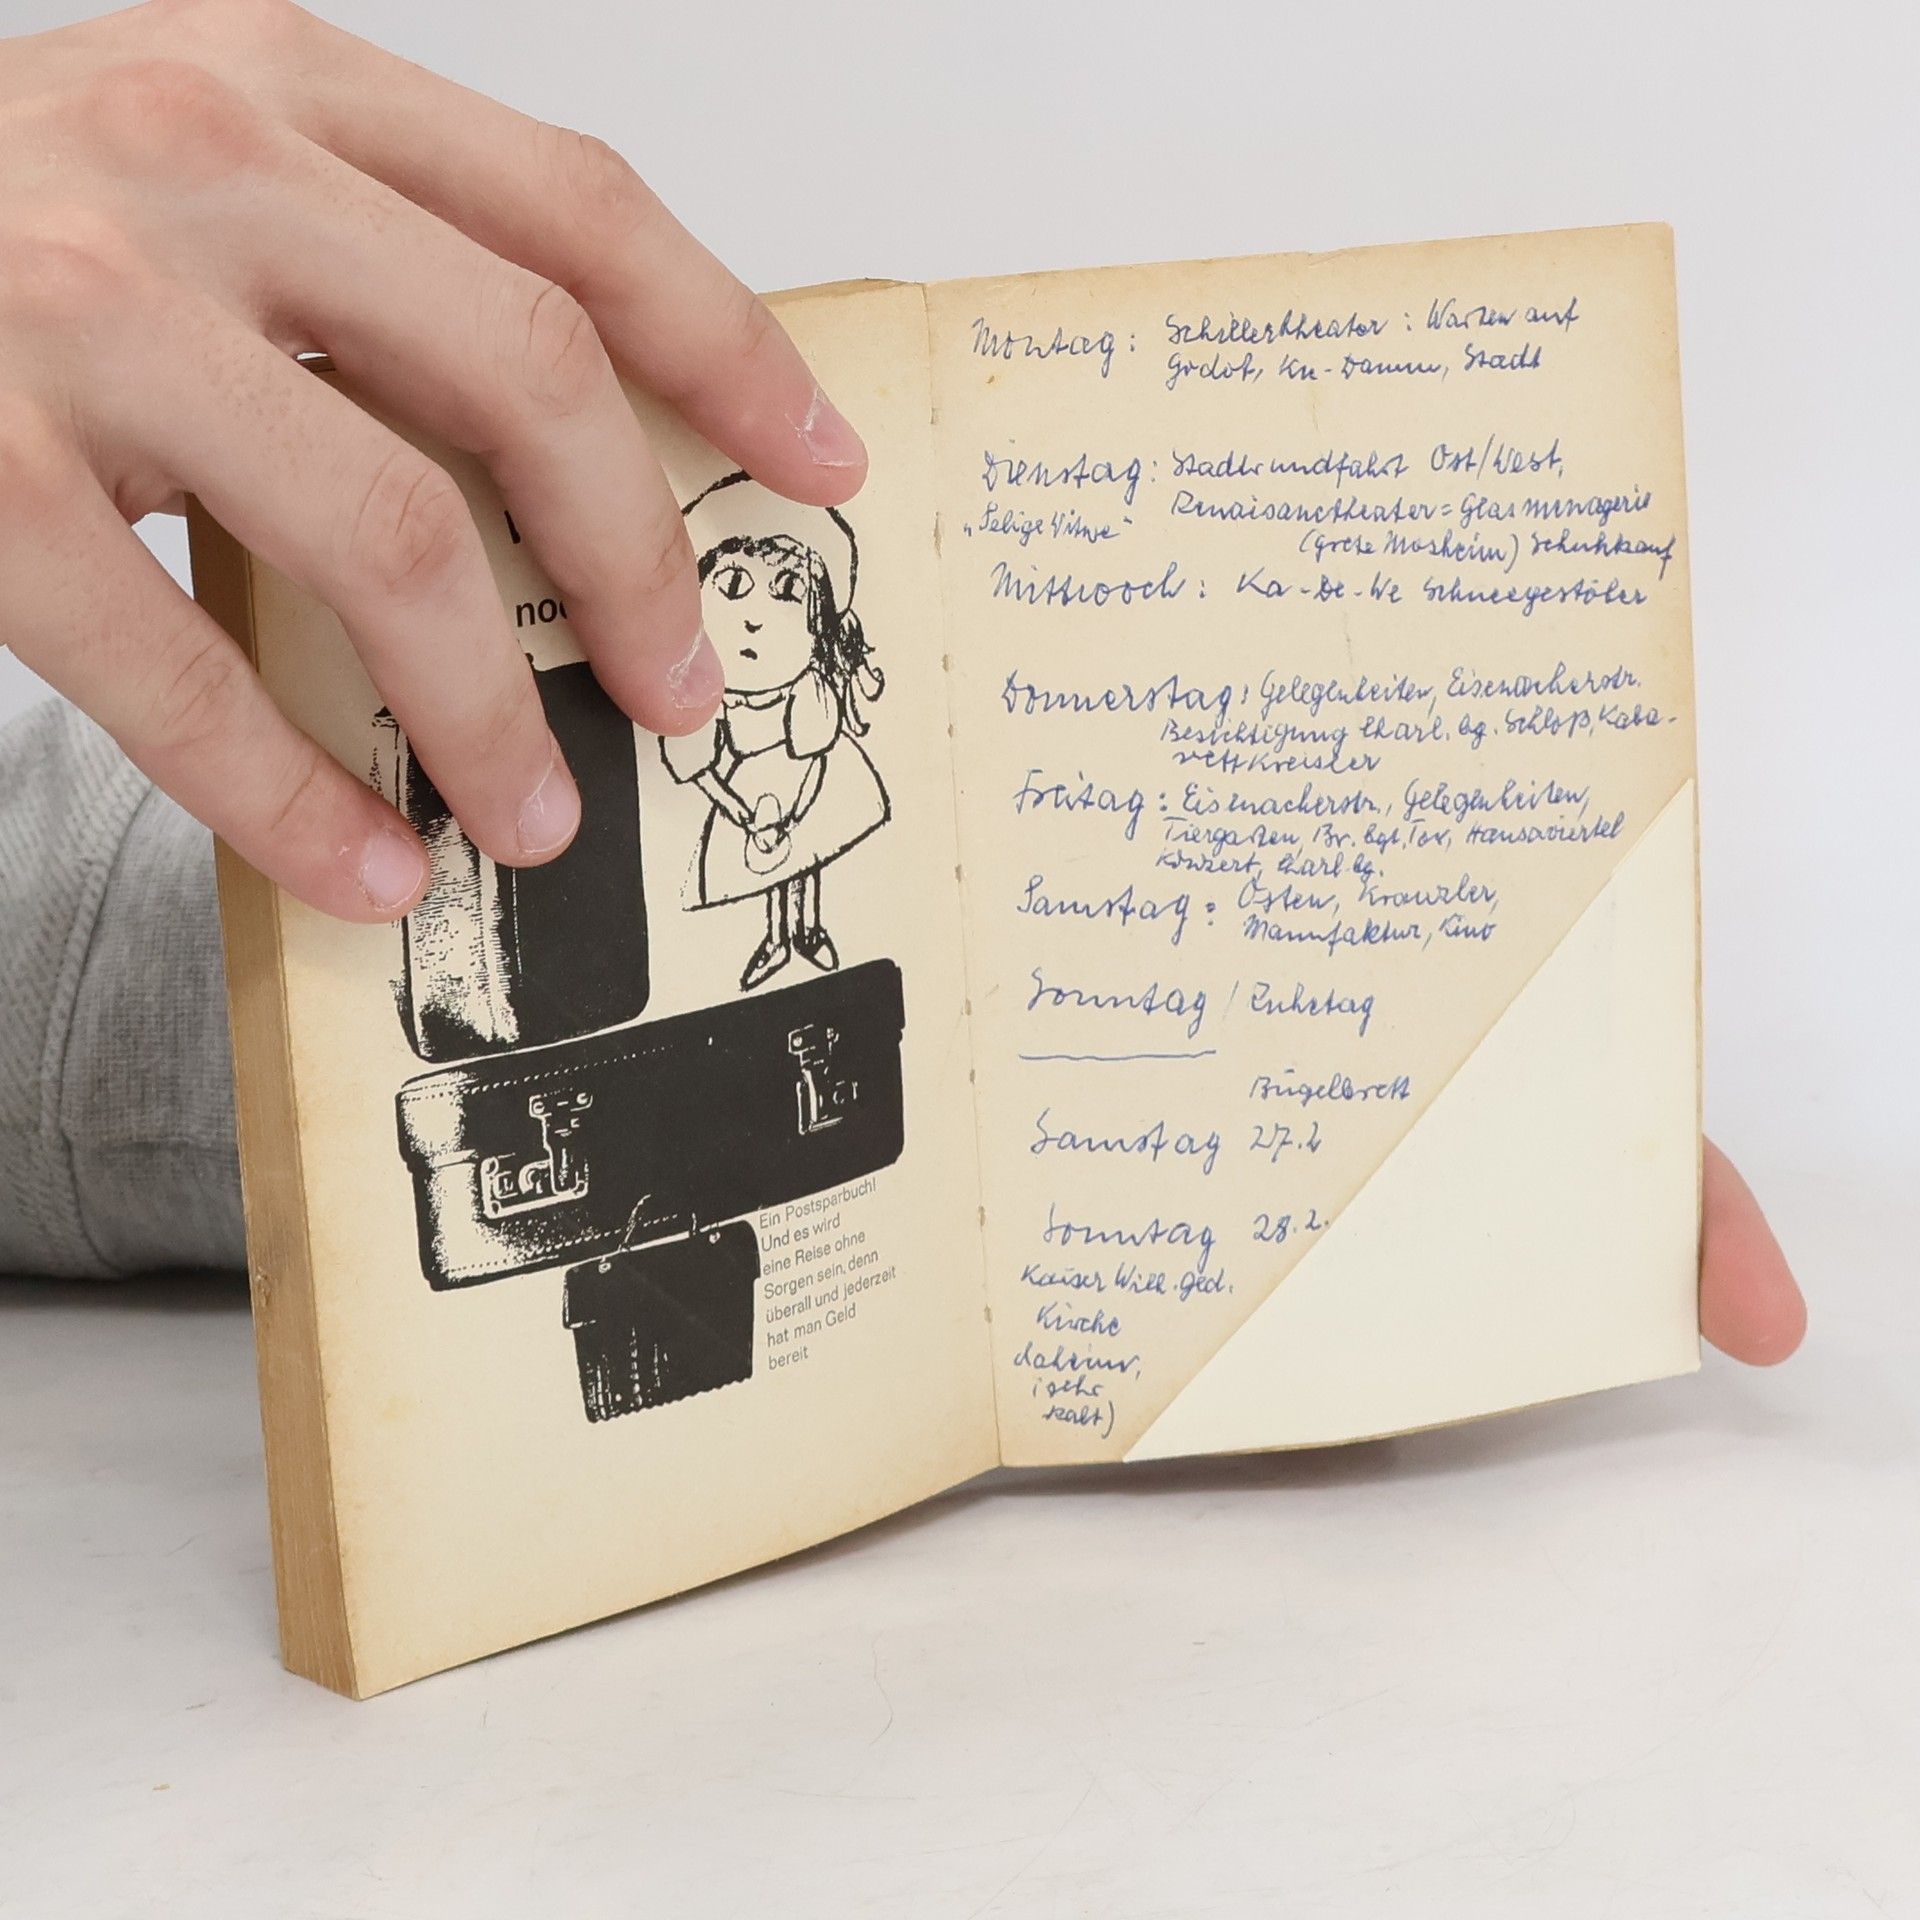 noc
Ein Postsparbuch!
Und es wird
eine Reise ohne
Sorgen sein, denn
überall und jederzeit
hat man Geld
bereit
Montag: Schillertheater: Warten auf
Godot, Ku-Damm, Stadt
Dienstag: Stadtrundfahrt Ost/West,
Renaisanctheater = Glasmenagerie
"Selige Witwe"
(Grete Mosheim) Schuhkauf
Mittwoch: Ka-De-We Schneegestöber
Donnerstag: Gelegenheiten, Eisenacherstr.
Besichtigung Charl.bg. Schloß, Kaba-
rett Kreisler
Freitag: Eisenacherstr., Gelegenheiten,
Tiergarten, Br.bgt.Tor, Hansaviertel
Konzert, Charl.bg.
Samstag: Osten, Kranzler,
Manufaktur, Kino
Sonntag / Ruhetag
Bügelbrett
Samstag 27.2
Sonntag 28.2.
Kaiser Wilh. Ged.
Kirche
daheim,
(sehr
kalt)